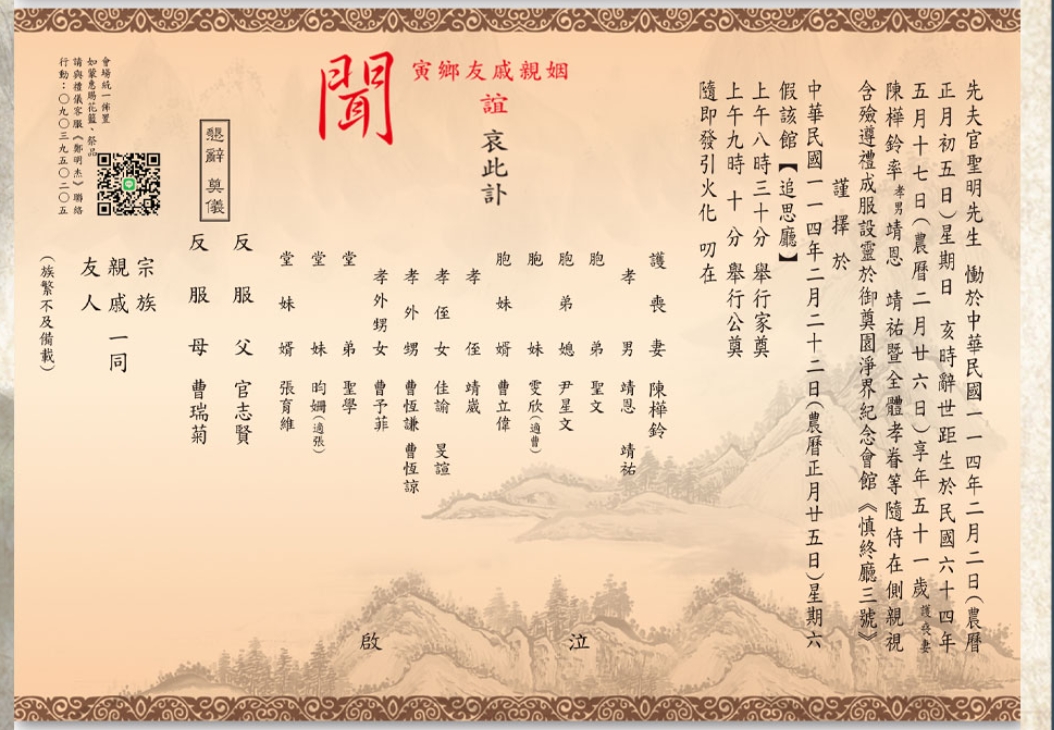 先夫官聖明先生　慟於中華民國一一四年二月二日(農曆
正月初五日)星期日　亥時辭世距生於民國六十四年
五月十七日(農曆二月廿六日)享年五十一歲護喪妻
陳樺鈴率孝男靖恩　靖祐暨全體孝眷等隨侍在側親視
含殮遵禮成服設靈於御奠園淨界紀念會館《慎終廳三號》
謹擇於
中華民國一一四年二月二十二日(農曆正月廿五日)星期六
假該館【追思廳】
上午八時三十分　舉行家奠
上午九時　十　分　舉行公奠
隨即發引火化　叨在
姻親戚友鄉寅
誼　哀此訃
聞
護喪妻　陳樺鈴
孝男　靖恩　靖祐
胞弟　聖文
胞弟媳　尹星文
胞妹　雯欣(適曹)
胞妹婿　曹立偉
孝侄　靖崴
孝侄女　佳諭　旻諠
孝外甥　曹恆謙　曹恆諒
孝外甥女　曹予菲
堂弟　聖學
堂妹　昀姍(適張)
堂妹婿　張育維
泣
啟
反服父　官志賢
反服母　曹瑞菊
懇辭　奠儀
宗族
親戚一同
友人
(族繁不及備載)
會場統一佈置
如蒙惠賜花籃、祭品
請與禮儀客服《鄭明杰》聯絡
行動：〇九〇三九五〇二〇五